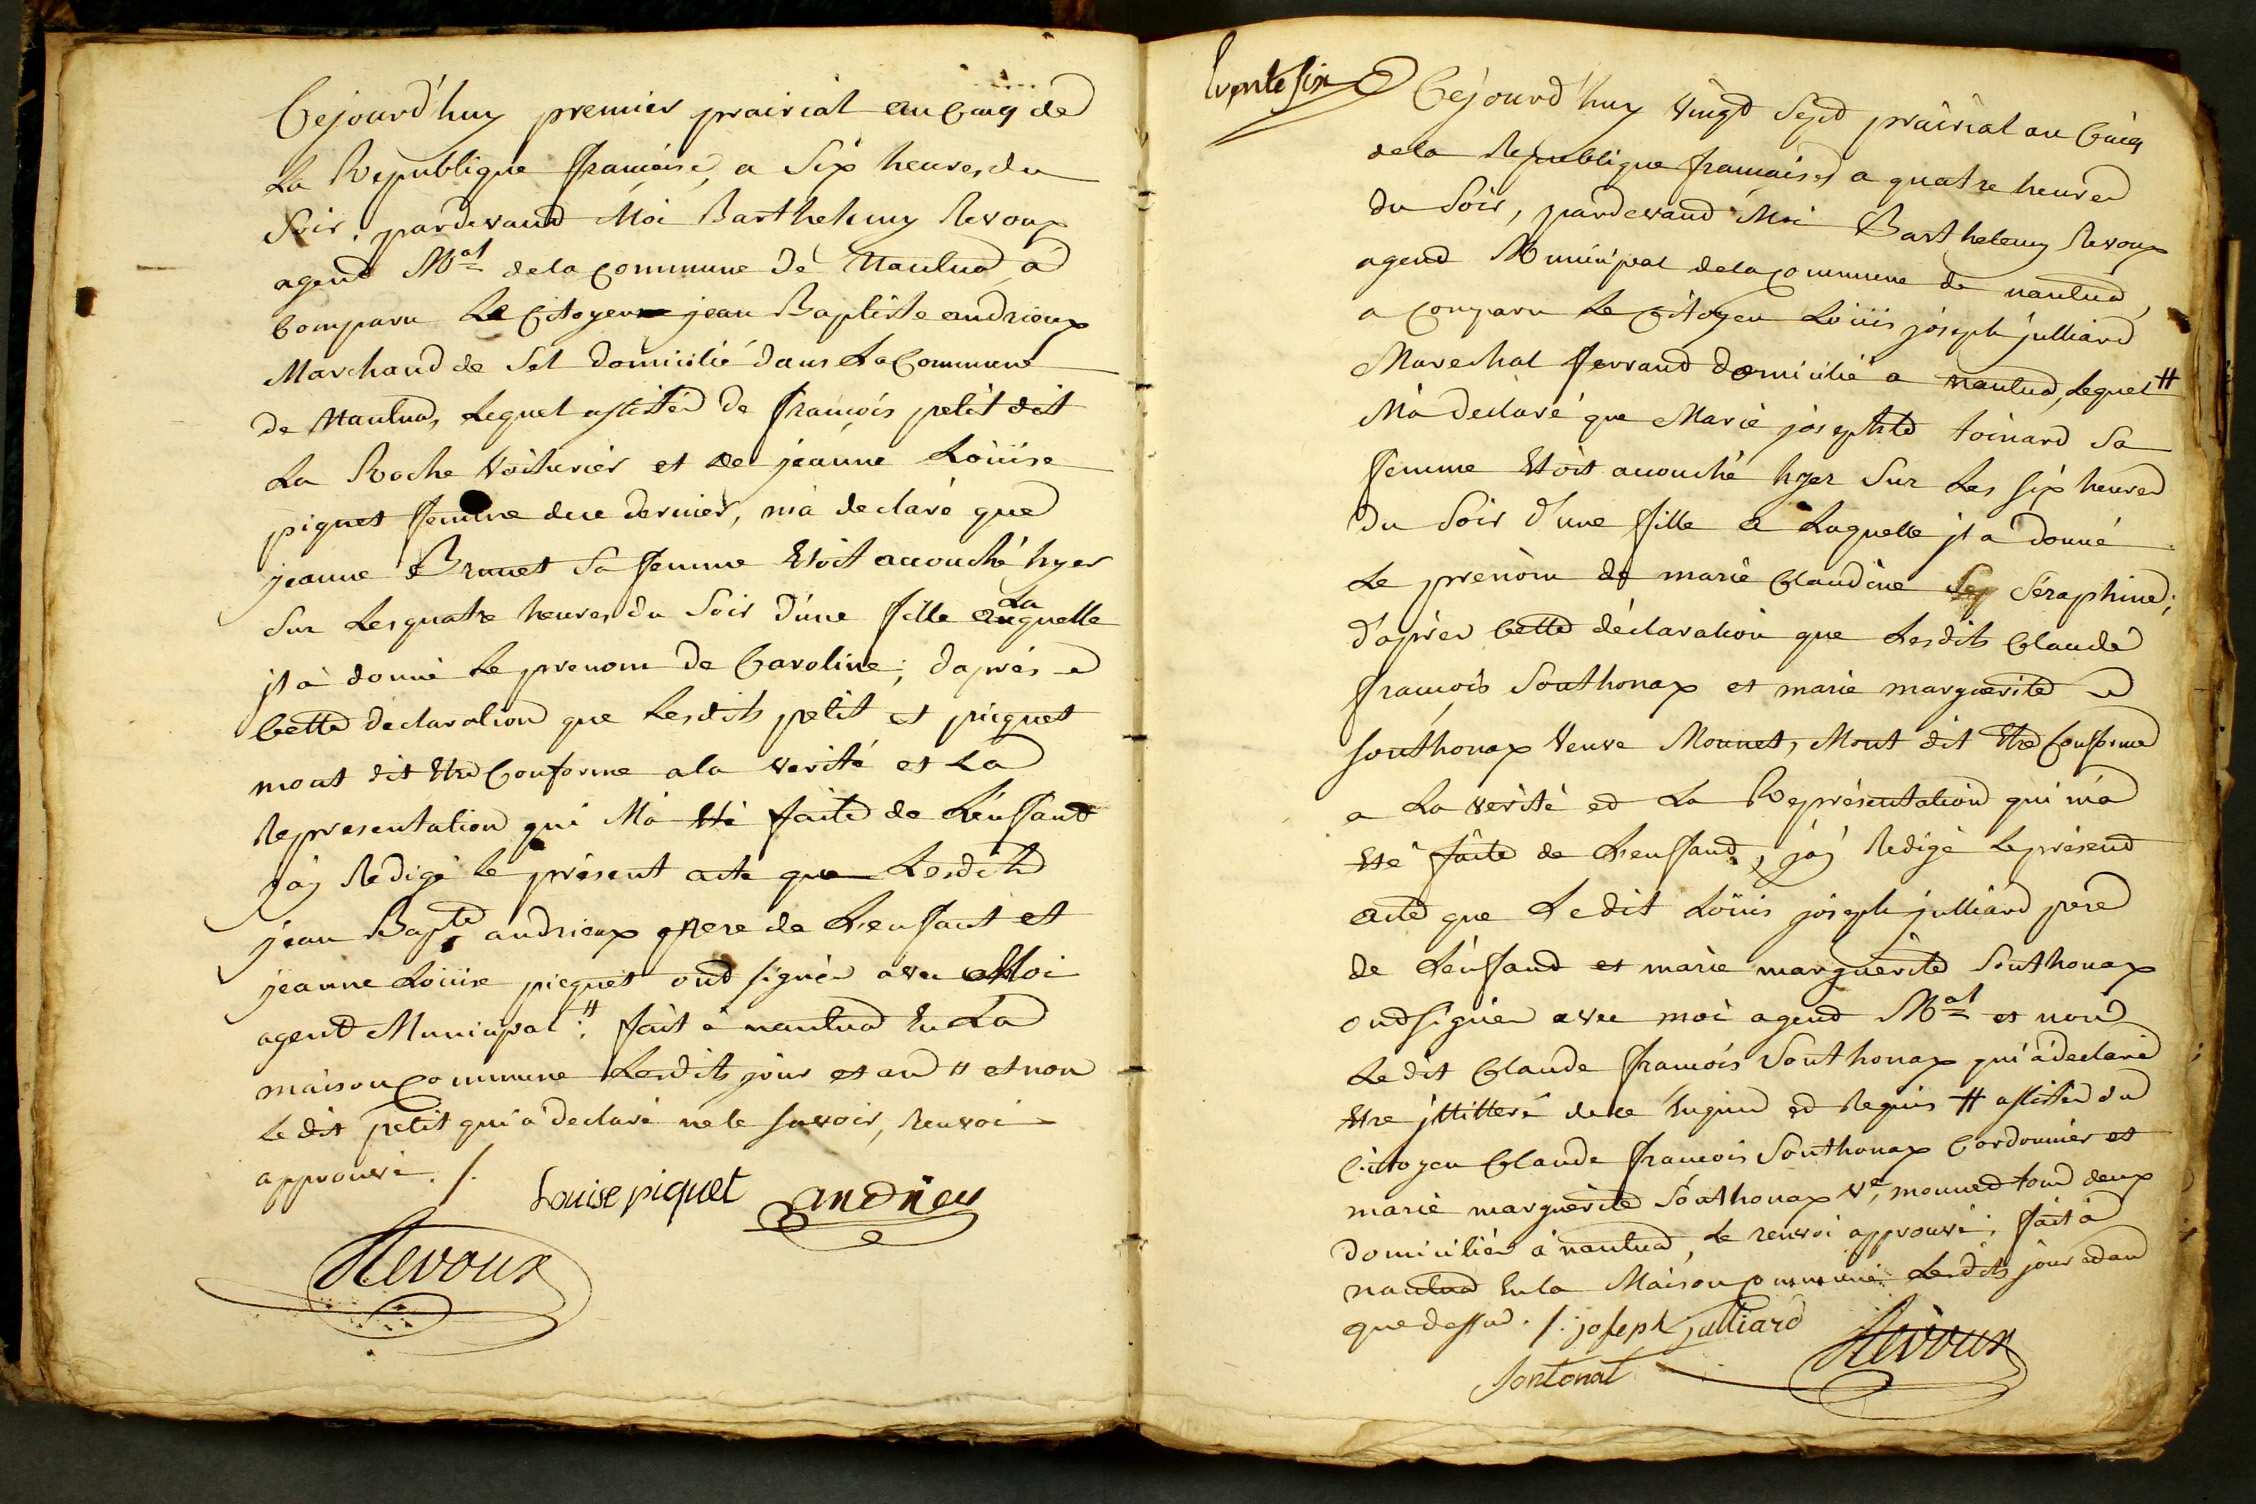 Cejourd'huy premier prairial an Cinq de
La Republique francaise, a Six heures du
Soir, pardevand Moi Barthelemy Revoux
agend M.al de la Commune de Nantua, à
Comparu Le Citoyen jean Baptiste andrieux
Marchand de Sel domicilié dans La Commune
de Nantua, Lequel assisté de francois petit dit
La Roche Voiturier et de jeanne Loüise
piquet femme de ce dernier, m'à declaré que
jeanne Brunet Sa femme Etoit accouché hyer
Sur Les quatre heures du Soir d'une fille a Laquelle
jl a donné Le prenom de Caroline; d'aprés
Cette declaration que Lesdits petit et picquet
mont dit Etre Conforme a la verité et La
Representation qui M'à Eté faite de L'enffant
j'ay Redigé le présent acte que Lesdits
jean Bapte andrieux pere de L'enffant et
jeanne Loüise picquet ond signés avec Moi
agent Municipal :# fait à nantua En La
maison Commune Lesdits jour et an # et non
Le dit petit qui a declaré ne le savoir, Renvoi
approuvé ./.
Louise piquet andrieu
Revoux
trente six
Cejourd'huy Vingt Sept prairial an Cinq
de la Republique francaise, a quatre heures
du Soir, pardevand Moi Barthelemy Revoux
agend Municipal de la Commune de nantua,
a Comparu Le Citoyen Loüis joseph julliard
Marechal ferrand domicilié a nantua, Lequel #
M'à declaré que Marie josephte toinard Sa
femme Etoit accouché hyer Sur Les six heures
du Soir d'une fille a Laquelle jl a donné
Le prenom de marie Claudine Sep Séraphine;
d'aprés Cette déclaration que Lesdits Claude
francois Southonax et marie marguerite
Southonax Veuve Monnet, Mont dit Etre Conforme
a La verité et La Représentation qui m'à
Eté faite de L'enffand, j'ay Redigé Le présend
acte que Le dit Loüis joseph julliard pere
de L'enffand et marie marguerite Southonax
ond signés avec moi agend M.al et non
Le dit Claude francois Southonax qui à declaré
Etre jllitteré de ce Enquis et Requis # assisté du
Citoyen Claude francois Southonax Cordonnier et
marie marguerite Southonax Ve, monnet tous deux
domiciliés à nantua, Le renvoi approuvé. fait à
nantua En la Maison Commune Lesdits jour et an
que dessus ./. joseph julliard
Sontonat Revoux